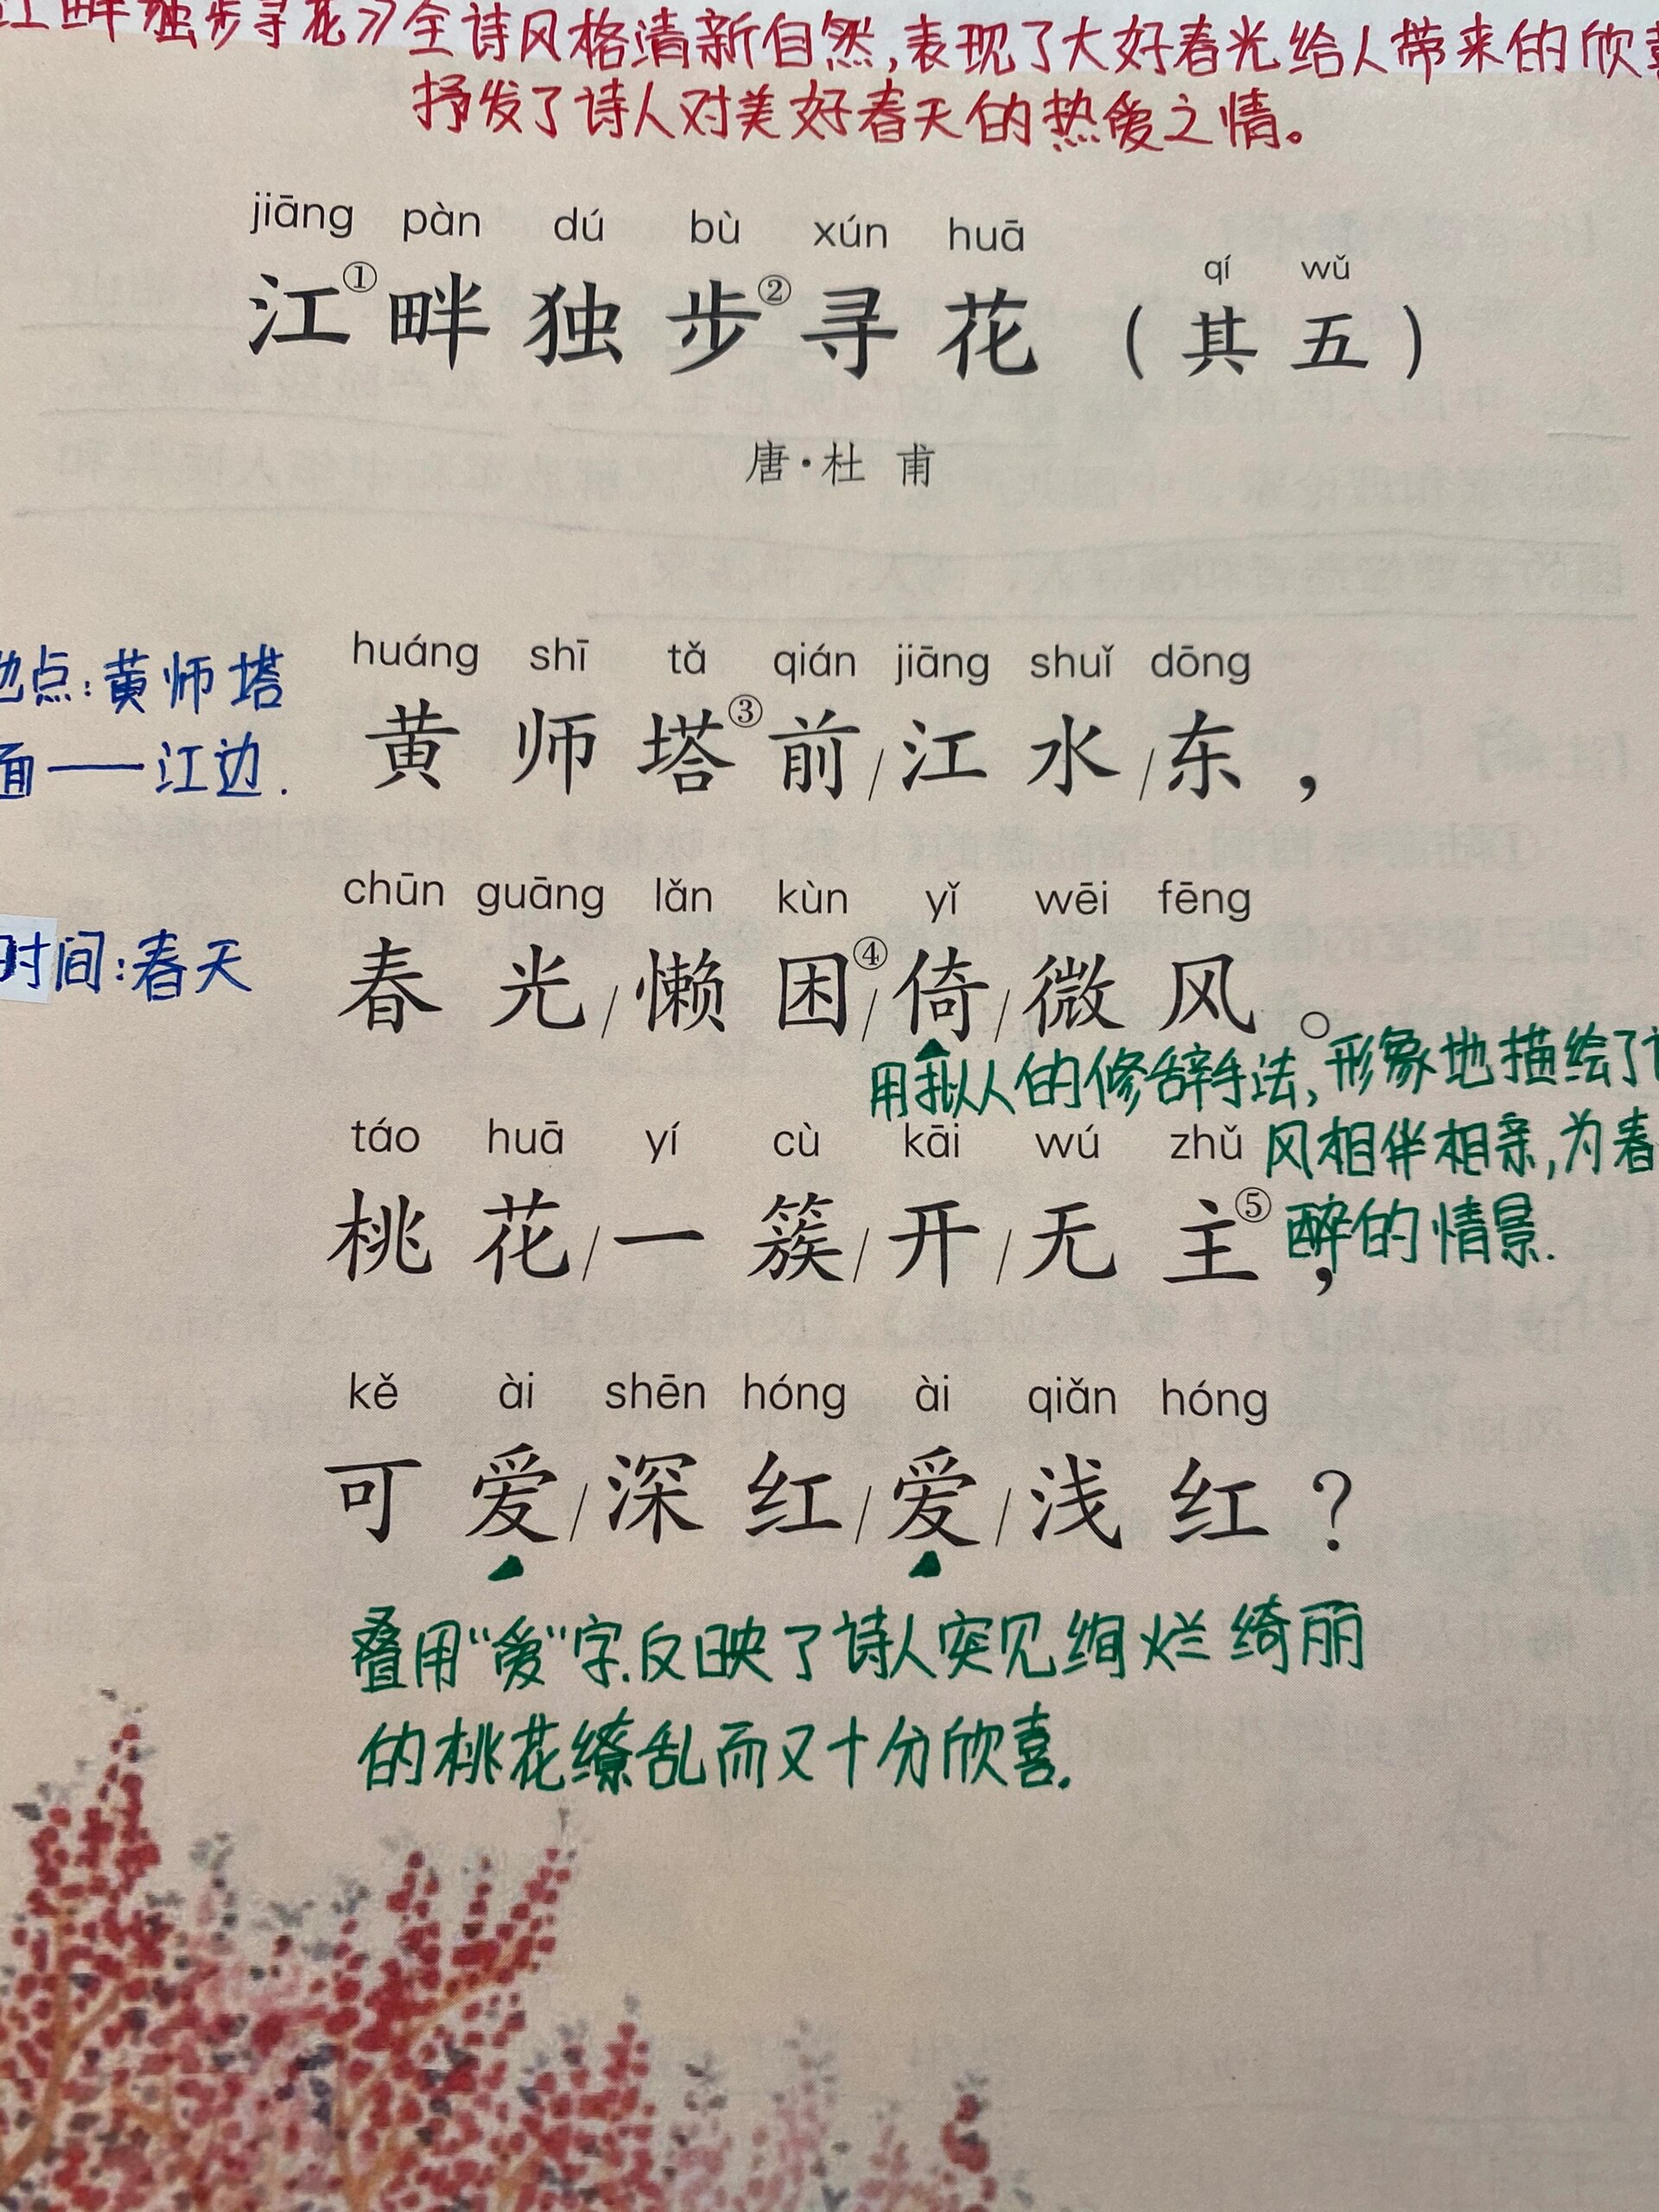 江畔独步寻花》全诗风格清新自然,表现了大好春光给人带来的欣喜
抒发了诗人对美好春天的热爱之情。
jiāng pàn dú bù xún huā qí wǔ
江①畔独步②寻花(其五)
唐·杜甫
地点:黄师塔
面——江边.
huáng shī tǎ qián jiāng shuǐ dōng
黄师塔③前/江水/东,
时间:春天
chūn guāng lǎn kùn yǐ wēi fēng
春光/懒困④/倚/微风。
用拟人的修辞手法,形象地描绘了
táo huā yí cù kāi wú zhǔ
风相伴相亲,为春
桃花/一簇/开/无主⑤,
醉的情景.
kě ài shēn hóng ài qiǎn hóng
可爱/深红/爱/浅红?
叠用“爱”字.反映了诗人突见绚烂绮丽
的桃花缭乱而又十分欣喜.